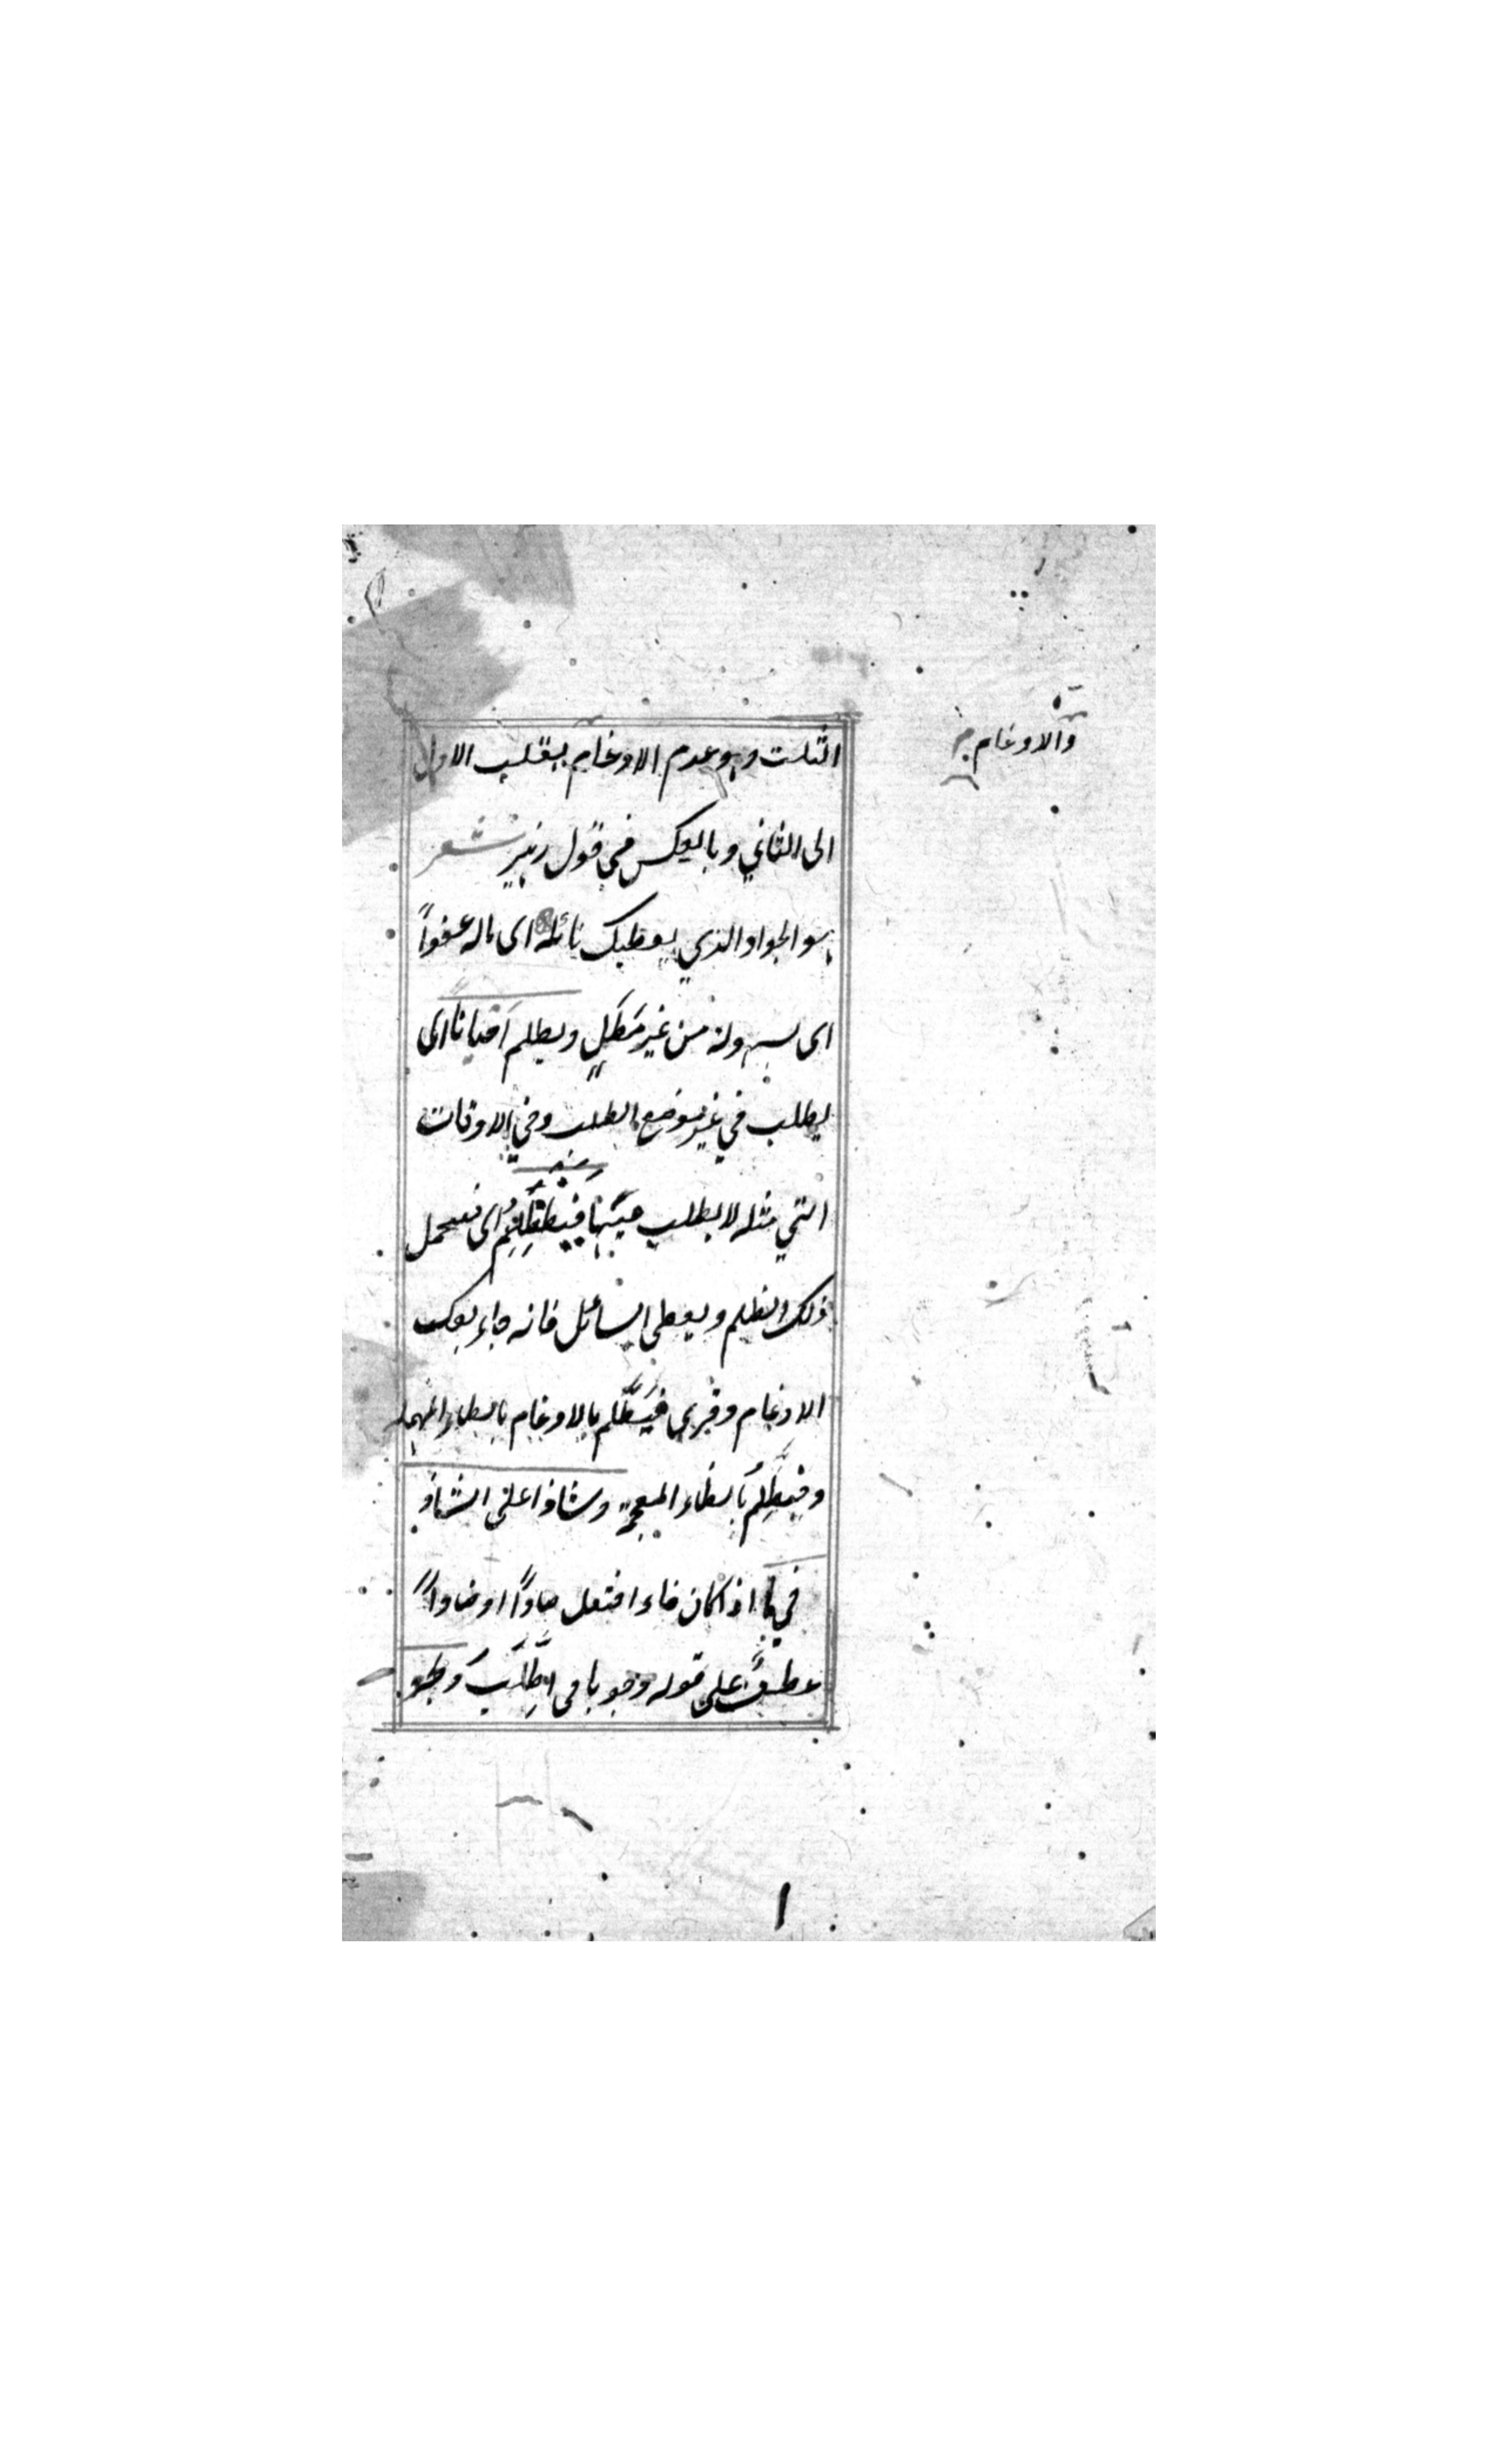 والادغام
الثلث وهو عدم الادغام بقلب الاول
الى الثاني وبالعكس في قول زهير شعر
هو الجواد الذي يعطيك نائله اى ماله عفواً
اى بسهولة من غير مَطَلٍ ويظلم اَحيانا اى
يطلب في غير موضع الطلب وفي الاوقات
التي مثله لا يطلب فيها فيظطلم اى فيتحمل
ذلك الظلم ويعطى السائل فانه جاء بفك
الادغام وقرى فيطَّلم بالادغام بالطاء المهملة
وفيظَّلِم بالظاء المعجمة وشاذا على الشاذ
في ما اذا كان فاء افتعل صاداً او ضاداً
عطفٌ على قوله وجوبا فى اطَّلَبَ
١